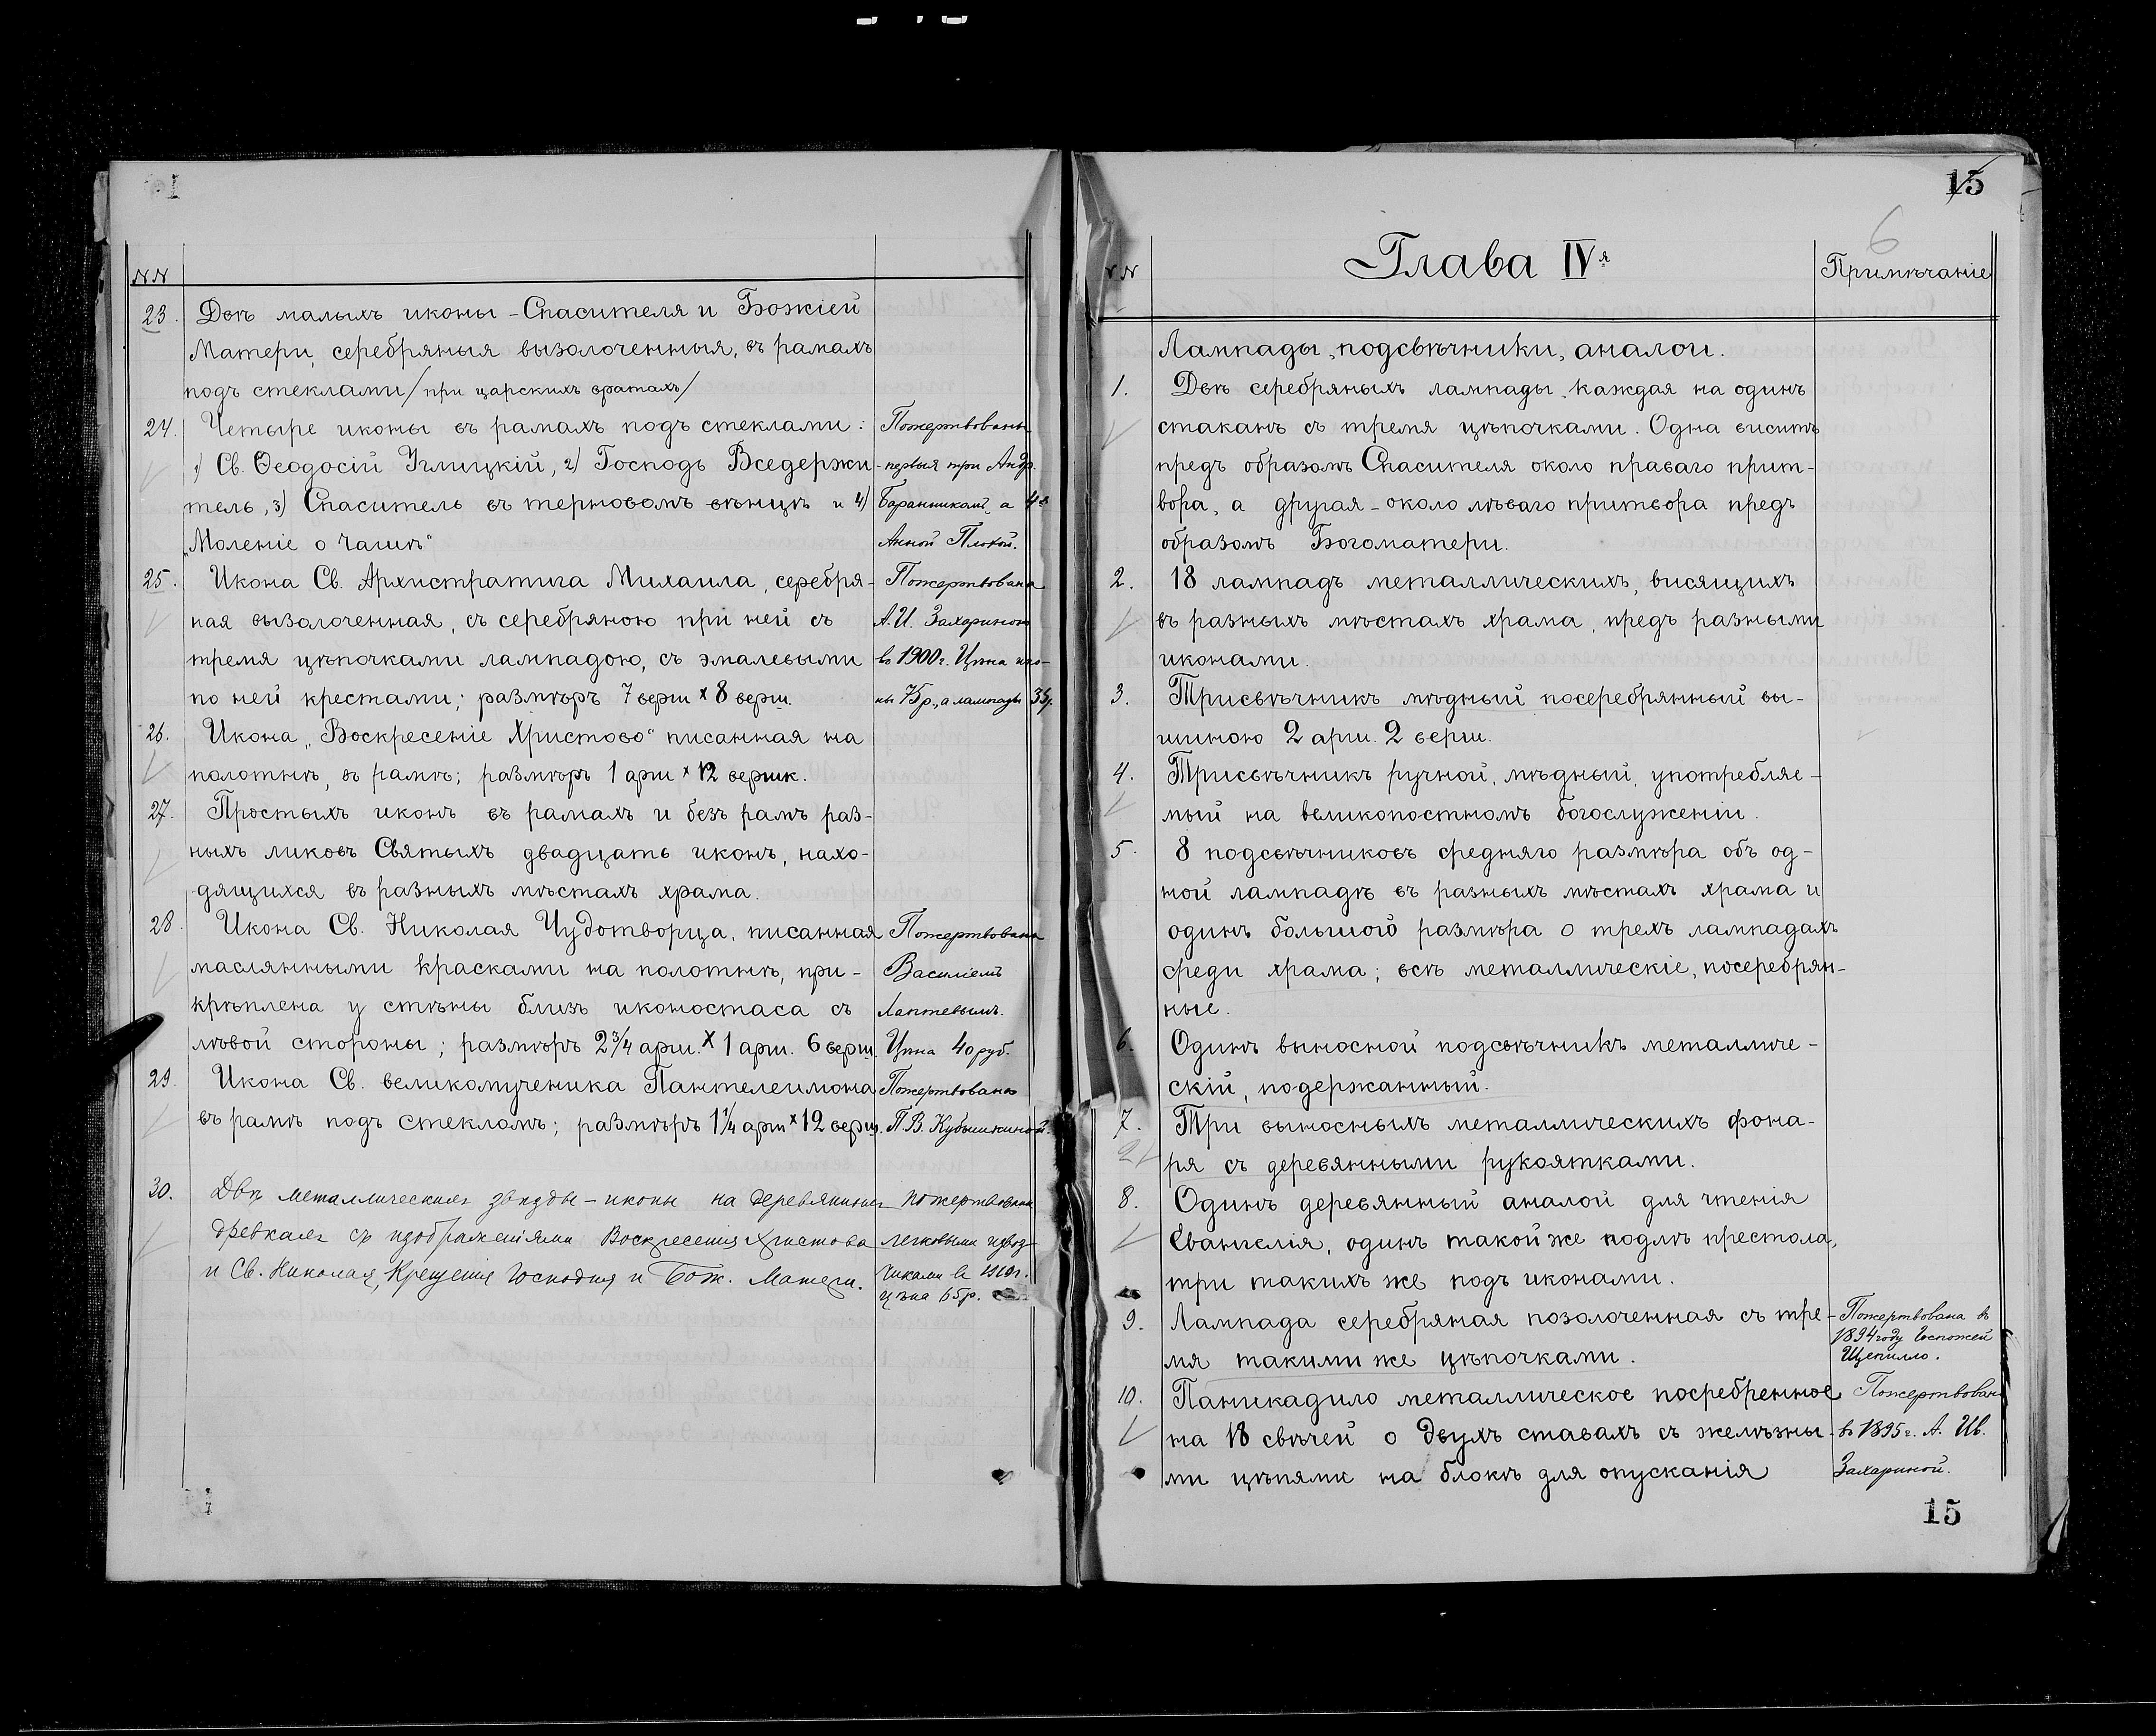 NN
23. Двѣ малыхъ иконы - Спасителя и Божіей
Матери, серебряныя вызолоченныя, въ рамахъ
подъ стеклами /при царскихъ вратахъ/
24. Четыре иконы въ рамахъ подъ стеклами: Пожертвованы
1) Св. Ѳеодосій Углицкій, 2) Господь Вседержи- первыя три Андр.
тель, 3) Спаситель въ терновомъ вѣнцѣ и 4) Баранникомъ, а 4я
„Моленіе о Чашѣ“ Анной
25. Икона Св. Архистратига Михаила, серебря- Пожертвована
ная вызолоченная, съ серебряною при ней съ А.И. Захариною
тремя цѣпочками лампадою, съ эмалевыми въ 1900г. Цѣна ико-
по ней крестами; размѣръ 7 верш x 8 верш. ны 75р., а лампады 35р.
26. Икона „Воскресеніе Христово“ писанная на
полотнѣ, въ рамѣ; размѣръ 1 арш x 12 вершк.
27. Простыхъ иконъ въ рамахъ и безъ рамъ раз-
ныхъ ликовъ Святыхъ двадцать иконъ, нахо-
дящихся въ разныхъ мѣстахъ храма.
28. Икона Св. Николая Чудотворца, писанная Пожертвована
маслянными красками на полотнѣ, при- Василіемъ
крѣплена у стѣны близъ иконостаса съ Лаптевымъ.
лѣвой стороны; размѣръ 2 3/4 арш. x 1 арш. 6 верш. Цѣна 40 руб.
29. Икона Св. великомученика Пантелеимона Пожертвована
въ рамѣ подъ стекломъ; размѣръ 1 1/4 арш x 12 верш. П.В. Кубышкиной.
30. Двѣ металлическихъ звѣзды - иконы на деревянныхъ пожертвованы
древкахъ съ изображеніями Воскресенія Христова легковыми извоз-
и Св. Николая, Крещенія Господня и Бож. Матери. чиками въ 1910г.
цѣна 65р.
15
6
NN Глава IVя Примѣчаніе
Лампады, подсвѣчники, аналои.
1. Двѣ серебряныхъ лампады, каждая на одинъ
стаканъ съ тремя цѣпочками. Одна виситъ
предъ образомъ Спасителя около праваго прит-
вора, а другая - около лѣваго притвора предъ
образомъ Богоматери.
2. 18 лампадъ металлическихъ, висящихъ
въ разныхъ мѣстахъ храма, предъ разными
иконами.
3. Трисвѣчникъ мѣдный посеребрянный вы-
шиною 2 арш. 2 верш.
4. Трисвѣчникъ ручной, мѣдный, употребляе-
мый на великопостномъ богослуженіи.
5. 8 подсвѣчниковъ средняго размѣра объ од-
ной лампадѣ въ разныхъ мѣстахъ храма и
одинъ большого размѣра о трехъ лампадахъ
среди храма; всѣ металлическіе, посеребрян-
ные.
6. Одинъ выносной подсвѣчникъ металличе-
скій, подержанный.
7. Три выносныхъ металлическихъ фона-
2 ря съ деревянными рукоятками.
8. Одинъ деревянный аналой для чтенія
Евангелія, одинъ такой же подлѣ престола,
три такихъ же подъ иконами.
9. Лампада серебряная позолоченная съ тре- Пожертвована въ
1894 году Госпожей
мя такими же цѣпочками. Щепилло.
10. Паникадило металлическое посребренное Пожертвован
на 18 свѣчей о двухъ ставахъ съ желѣзны- въ 1895г. А. Ив.
ми цѣпями на блокѣ для опусканія Захариной.
15